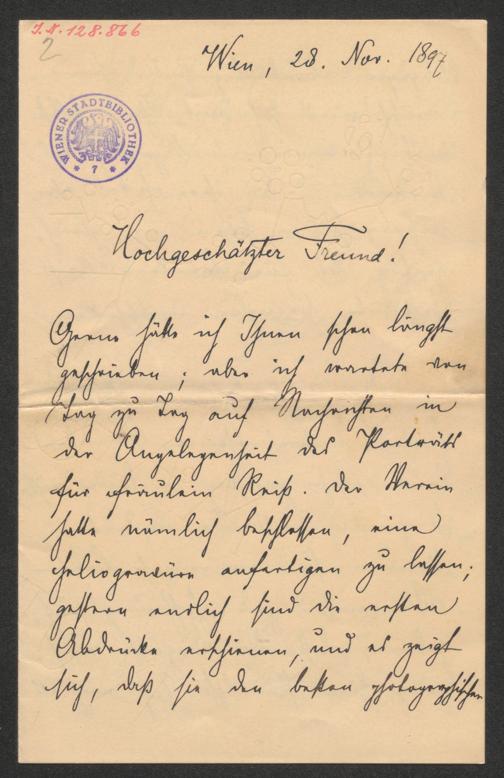 I.N. 128.866
2
Wien, 28. Nov. 1897
WIENER STADTBIBLIOTHEK
* 7 *
Hochgeschätzter Freund!
Gerne hätte ich Ihnen schon längst
geschrieben; aber ich wartete von
Tag zu Tag auf Nachrichten in
der Angelegenheit des Porträts
für Fräulein Reiß. Der Verein
hatte nämlich beschlossen, eine
Heliogravüre anfertigen zu lassen;
gestern endlich sind die ersten
Abdrücke erschienen, und es zeigt
sich, daß sie den besten photographischen